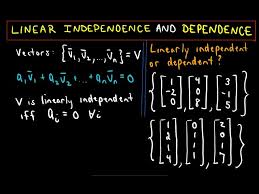 LINEAR INDEPENDENCE AND DEPENDENCE
Vectors: {v̄₁, v̄₂, ..., v̄ₙ} = V
a₁v̄₁ + a₂v̄₂ + ... + aₙv̄ₙ = 0
V is linearly independent
iff aᵢ = 0 ∀i
Linearly independent
or dependent?
{[1 -2 0], [4 0 8], [3 -1 5]}